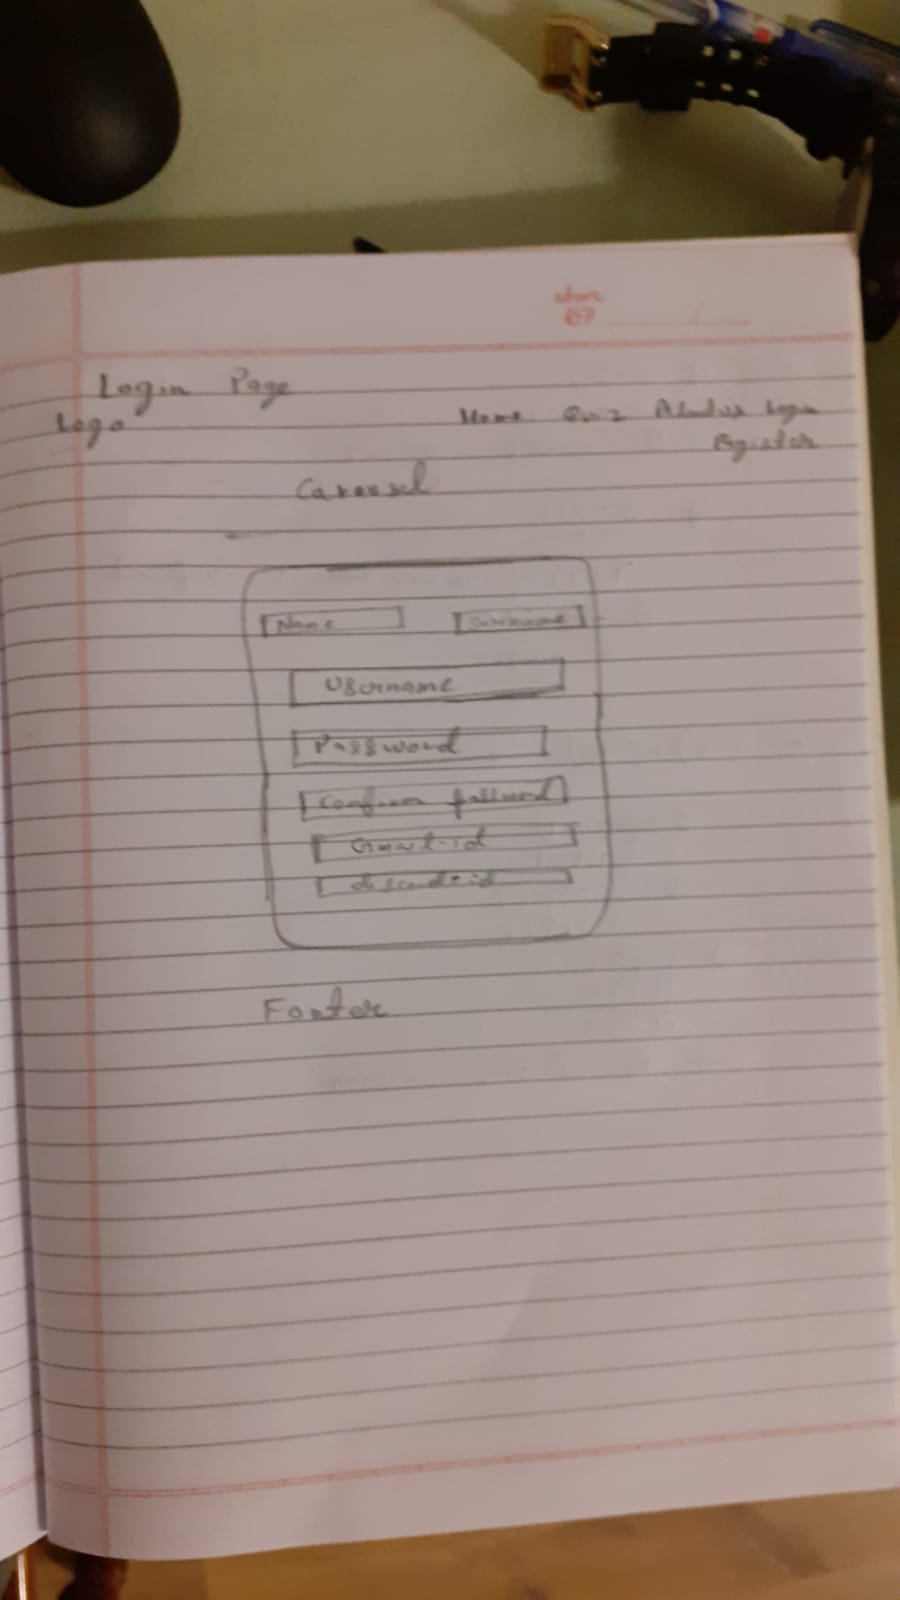 Login Page
Logo
Home Quiz Aboutus Login
Register
Carousel
Name Surname
Username
Password
Confirm password
Gmail-id
discord-id
Footer